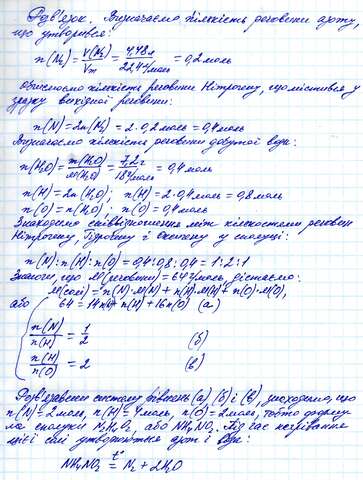 Розв'язок. Визначаємо кількість речовини азоту,
що утворився:
n(N₂) = V(N₂)/Vm = 4,48л/22,4л/моль = 0,2 моль
Обчислюємо кількість речовини Нітрогену, що містився у
зразку вихідної речовини:
n(N) = 2n(N₂) = 2·0,2моль = 0,4моль
Визначаємо кількість речовини добутої води:
n(H₂O) = m(H₂O)/M(H₂O) = 7,2г/18г/моль = 0,4моль
n(H) = 2n(H₂O); n(H) = 2·0,4моль = 0,8моль
n(O) = n(H₂O); n(O) = 0,4моль
Знаходимо співвідношення між кількостями речовин
Нітрогену, Гідрогену і Оксигену у сполуці:
n(N):n(H):n(O) = 0,4:0,8:0,4 = 1:2:1
Знаючи, що M(речовини) = 64г/моль дістаємо:
M(солі) = n(N)·M(N) + n(H)·M(H) + n(O)·M(O),
або 64 = 14n(N) + n(H) + 16n(O) (а)
n(N)/n(H) = 1/2 (б)
n(H)/n(O) = 2 (в)
Розв'язавши систему рівнянь (а) (б) і (в), знаходимо, що
n(N) = 2моль, n(H) = 4моль, n(O) = 2моль, тобто форму-
ла сполуки N₂H₄O₂, або NH₄NO₂. Під час нагрівання
цієї солі утворюються азот і вода:
NH₄NO₂ =t°= N₂ + 2H₂O